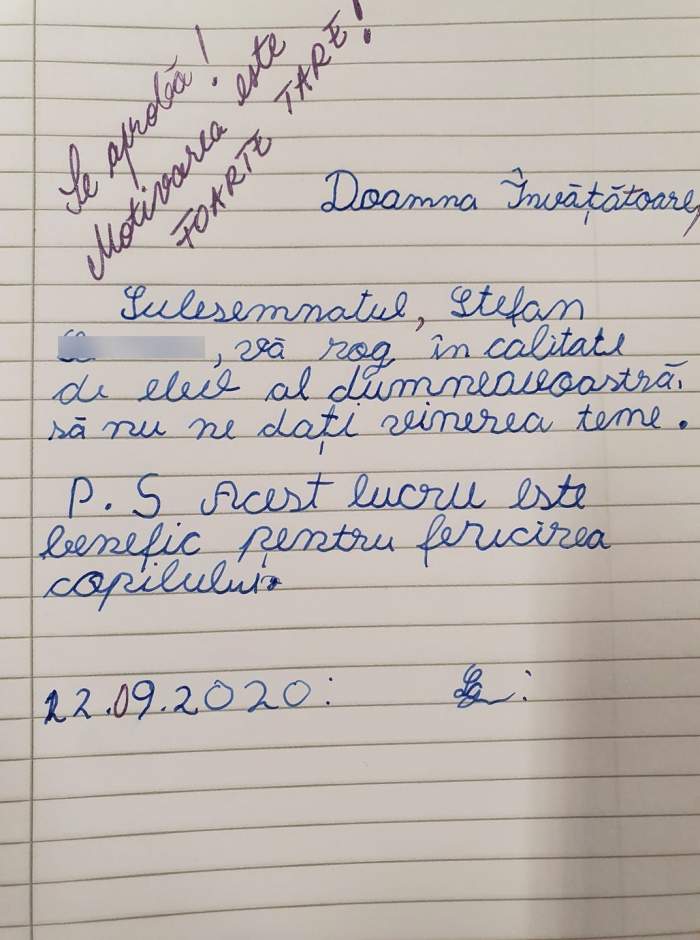 Se aprobă!
Motivarea este
FOARTE TARE!
Doamna Învățătoare,
Subsemnatul, Ștefan
, vă rog în calitate
de elev al dumneavoastră,
să nu ne dați vinerea teme.
P.S Acest lucru este
benefic pentru fericirea
copilului.
22.09.2020: